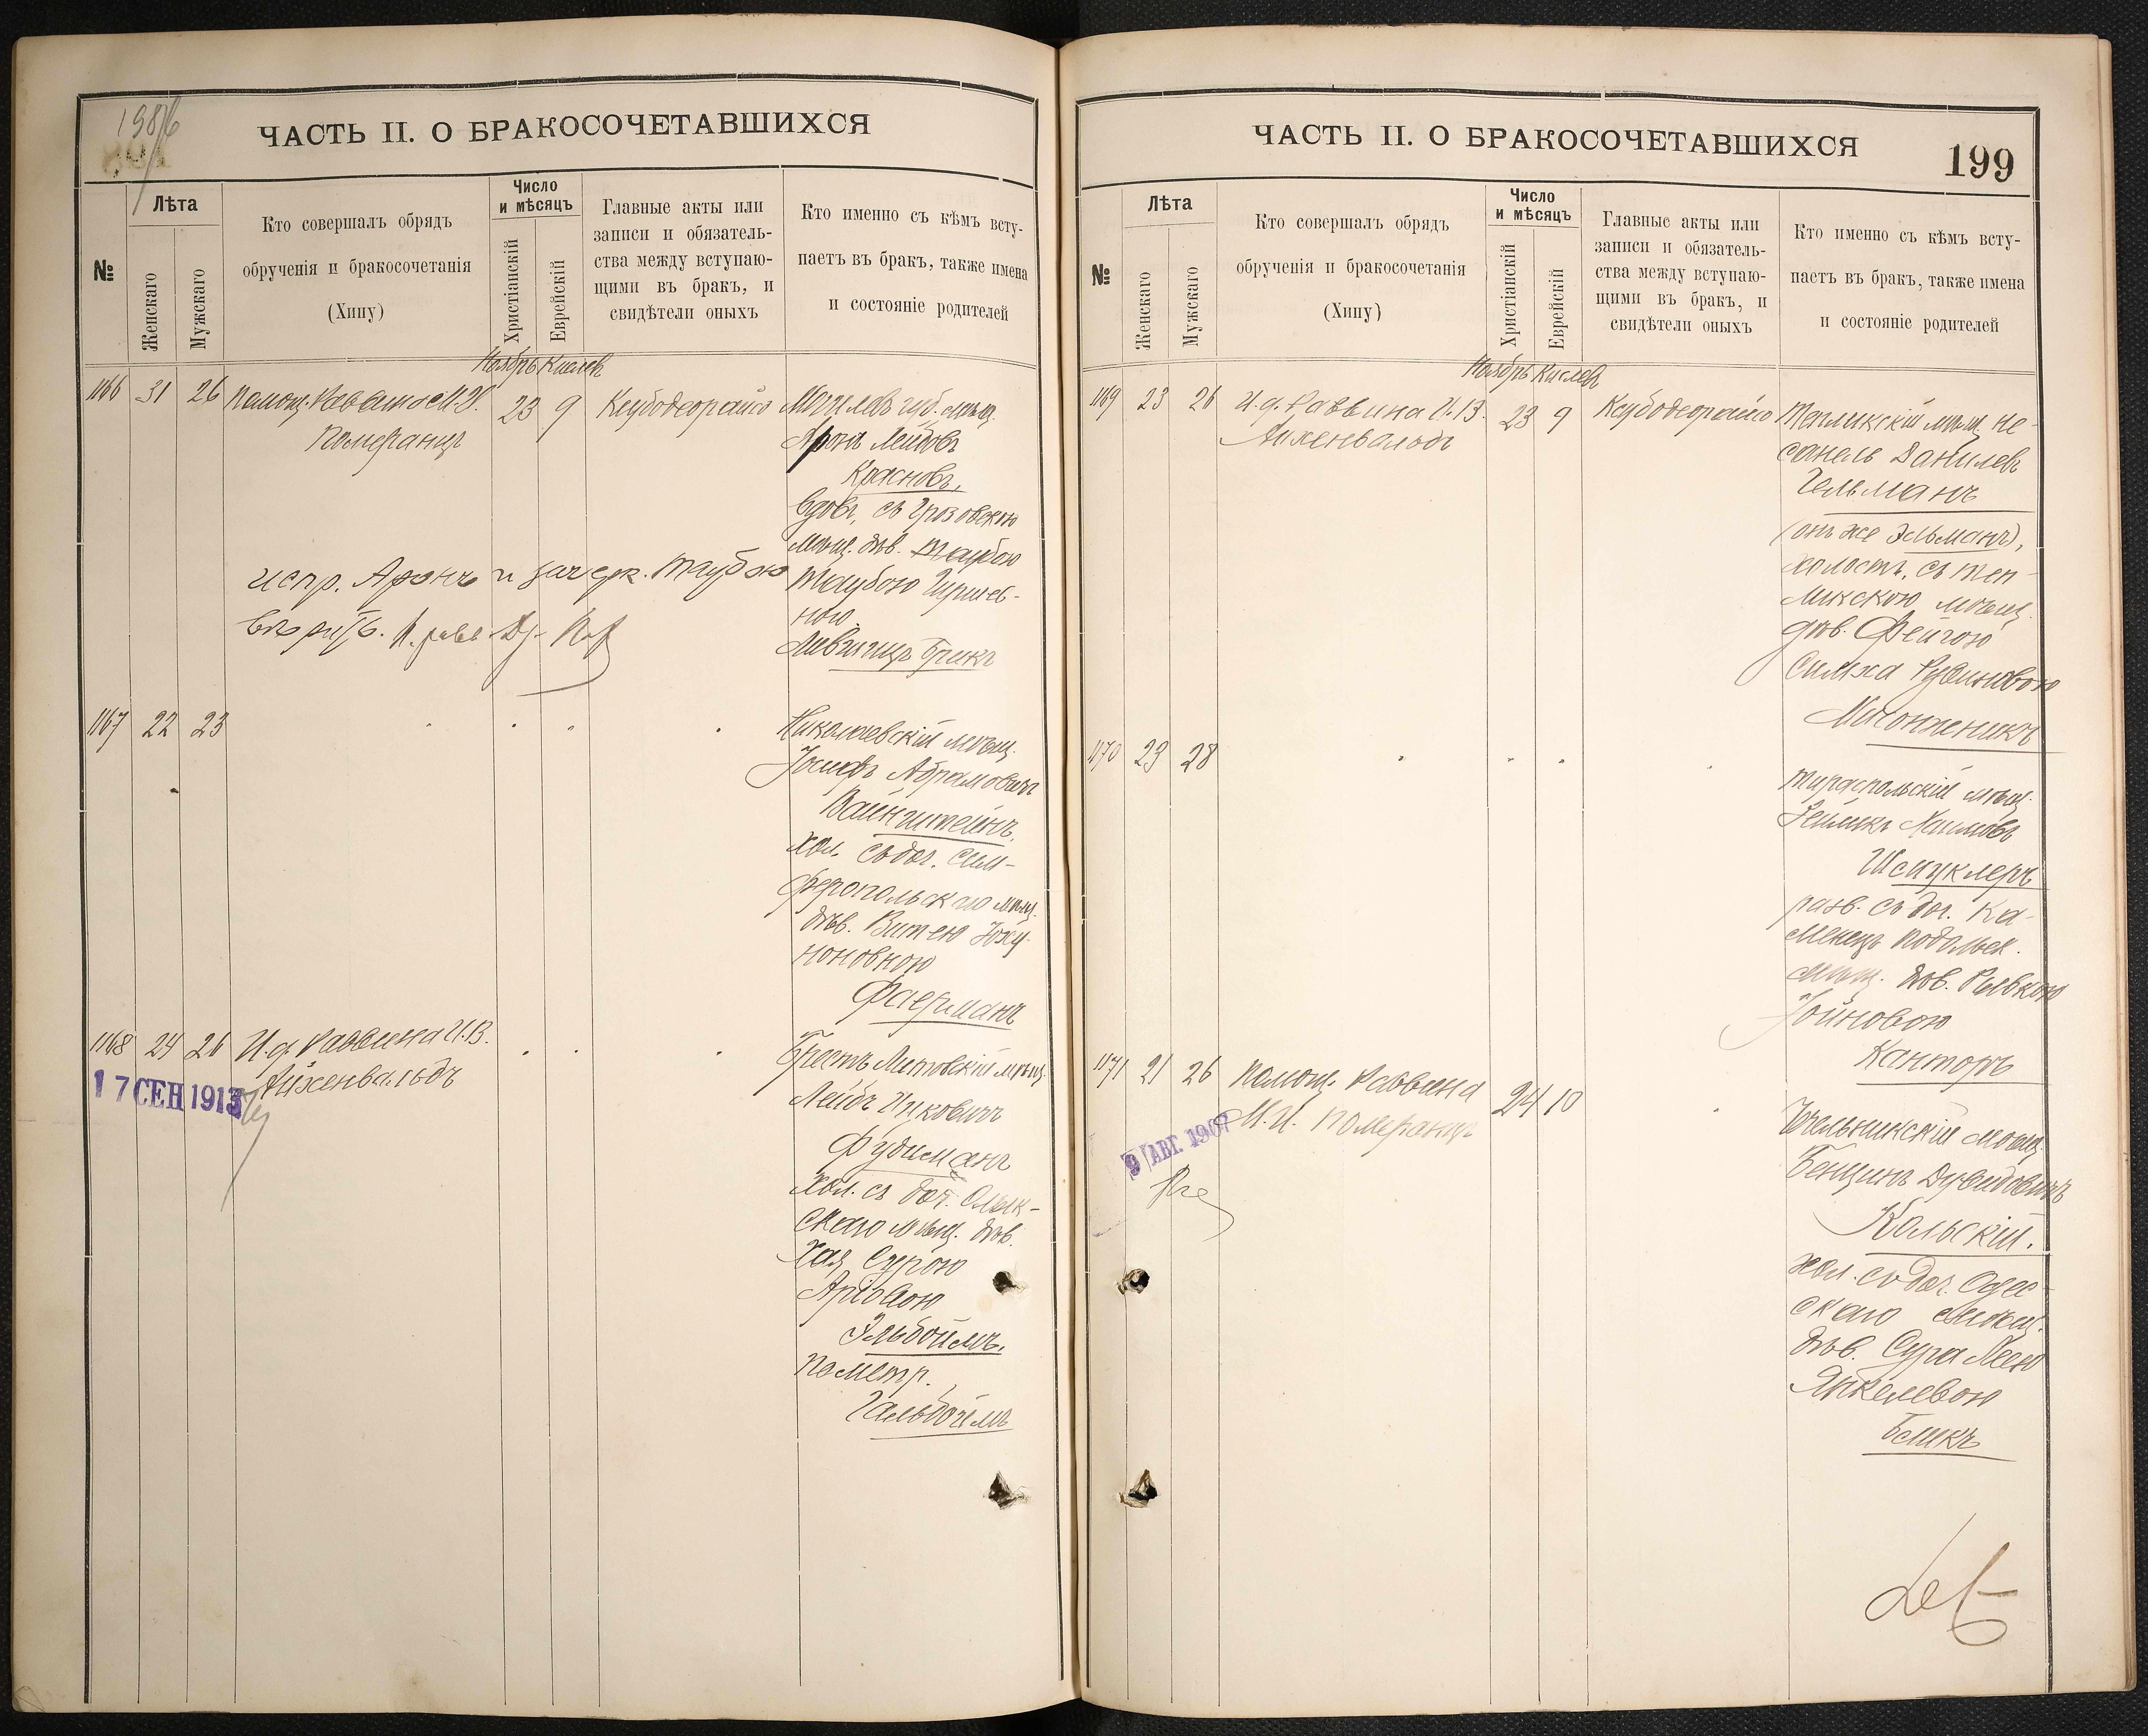 198/6
ЧАСТЬ II. О БРАКОСОЧЕТАВШИХСЯ
№
Лѣта
Женскаго
Мужскаго
Кто совершалъ обрядъ
обрученія и бракосочетанія
(Хипу)
Число
и мѣсяцъ
Христіанскій
Еврейскій
Главные акты или
записи и обязатель-
ства между вступаю-
щими въ бракъ, и
свидѣтели оныхъ
Кто именно съ кѣмъ всту-
паетъ въ бракъ, также имена
и состояніе родителей
Ноябрь Кислев
1166 31 26 Помощ. Раввина М.И.
Померанцъ
23 9 Кцубодеорайсо
Могилев губ. мѣщ.
Аронъ Лейбовъ
Красновъ,
вдов., съ Грозовскою
мѣщ. дѣв.
Таубою Гиршев-
ною
испр. Аронъ и зачерк. Таубою
1167 22 23
Николаевскій мѣщ.
Іосифъ Абрамовичъ
Вайнштейнъ,
хол. съ доч. Сим-
феропольскаго мѣщ.
дѣв.
ноновною
Фаерманъ
1168 24 26 И.д. Раввина И.В.
Айхенвальдъ
17 СЕН 1913
Брестъ Литовскій мѣщ.
Лейбъ Ицковичъ
Фудиманъ
хол. съ доч. Олык-
скаго мѣщ. дѣв.
Хая Сурою
Аріовою
Эльбоймъ,
по метр.
Гальбоймъ
ЧАСТЬ II. О БРАКОСОЧЕТАВШИХСЯ
199
№
Лѣта
Женскаго
Мужскаго
Кто совершалъ обрядъ
обрученія и бракосочетанія
(Хипу)
Число
и мѣсяцъ
Христіанскій
Еврейскій
Главные акты или
записи и обязатель-
ства между вступаю-
щими въ бракъ, и
свидѣтели оныхъ
Кто именно съ кѣмъ всту-
паетъ въ бракъ, также имена
и состояніе родителей
Ноябрь Кислев
1169 23 26 И.д. Раввина И.В.
Айхенвальдъ
23 9 Кцубодеорайсо
Тепликскій мѣщ. Не-
санель Данилев
Гельманъ
(онъ же Эльманъ),
холостъ, съ Теп-
ликскою мѣщ.
дѣв. Фейгою
Симха Рувиновою
1170 23 28
Тираспольскій мѣщ.
Хаимовъ
Шмуклеръ
разв. съ доч. Ка-
менецъ Подольск.
мѣщ. дѣв. Ривкою
Іойновою
Канторъ
1171 21 26 Помощ. Раввина
М.И. Померанцъ
24 10
9 АВГ. 1907
Чечельникскій мѣщ.
Бенціинъ Дувидовичъ
Кальскій.
хол. съ доч. Одес-
скаго мѣщ.
дѣв. Сура Леею
Янкелевою
Бликъ